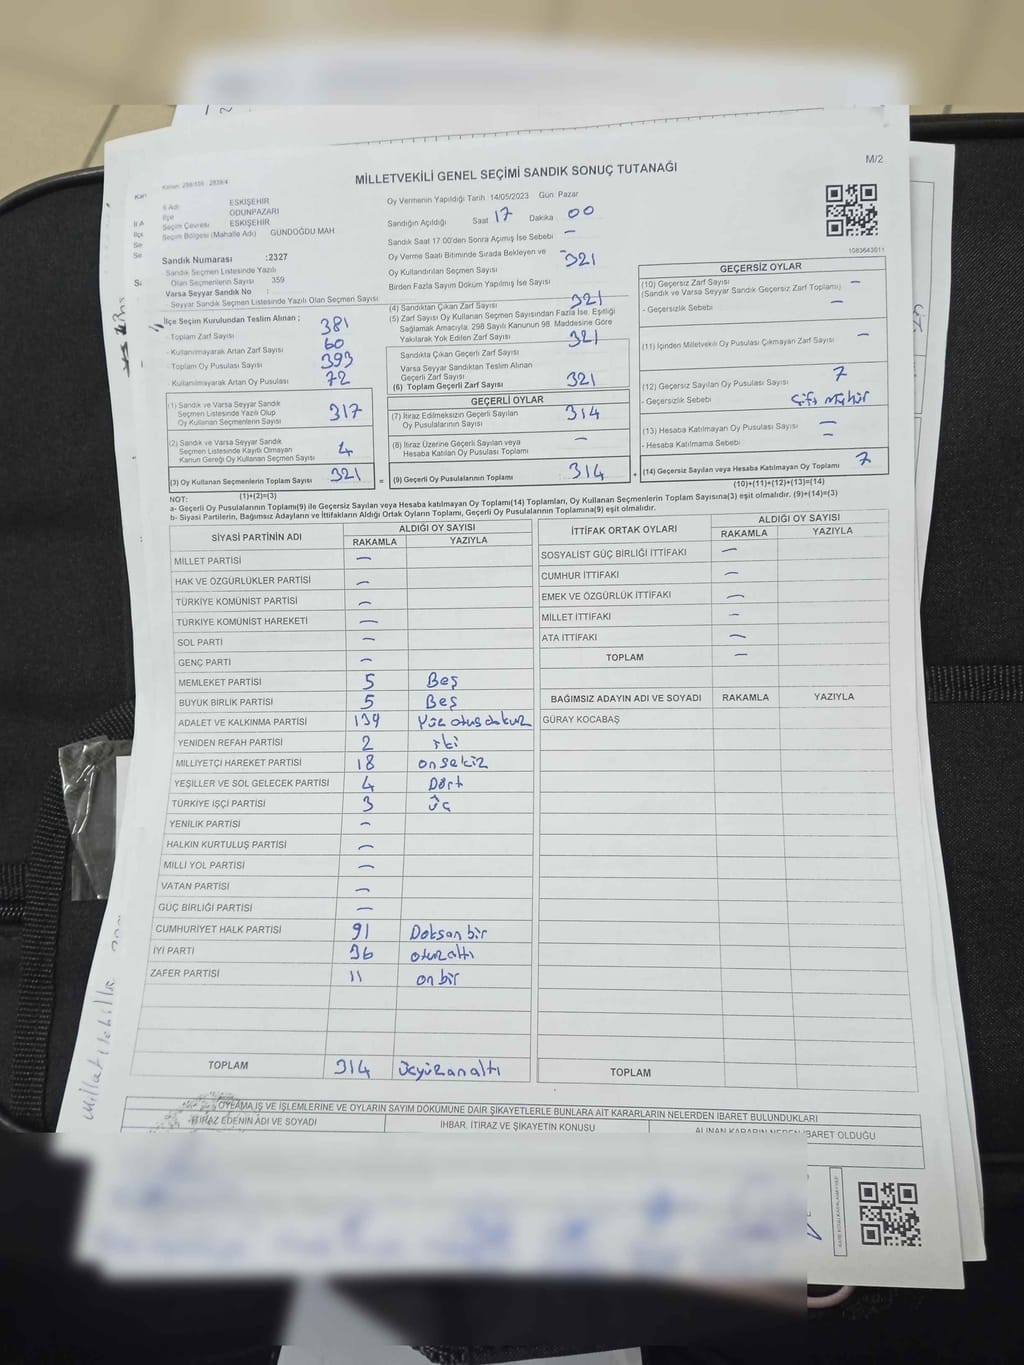 M/2
MİLLETVEKİLİ GENEL SEÇİMİ SANDIK SONUÇ TUTANAĞI
İl Adı ESKİŞEHİR
İlçe ODUNPAZARI
Seçim Çevresi ESKİŞEHİR
Seçim Bölgesi (Mahalle Adı) GÜNDOĞDU MAH
Sandık Numarası :2327
Sandık Seçmen Listesinde Yazılı
Olan Seçmenlerin Sayısı 359
Varsa Seyyar Sandık No :
Seyyar Sandık Seçmen Listesinde Yazılı Olan Seçmen Sayısı
Oy Vermenin Yapıldığı Tarih 14/05/2023 Gün: Pazar
Sandığın Açıldığı Saat 17 Dakika 00
Sandık Saat 17.00'den Sonra Açılmış İse Sebebi –
Oy Verme Saati Bitiminde Sırada Bekleyen ve
Oy Kullandırılan Seçmen Sayısı
Birden Fazla Sayım Döküm Yapılmış İse Sayısı
321
1083643011
İlçe Seçim Kurulundan Teslim Alınan ;
- Toplam Zarf Sayısı 381
- Kullanılmayarak Artan Zarf Sayısı 60
- Toplam Oy Pusulası Sayısı 393
- Kullanılmayarak Artan Oy Pusulası 72
(1) Sandık ve Varsa Seyyar Sandık
Seçmen Listesinde Yazılı Olup
Oy Kullanan Seçmenlerin Sayısı 317
(2) Sandık ve Varsa Seyyar Sandık
Seçmen Listesinde Kayıtlı Olmayan
Kanun Gereği Oy Kullanan Seçmen Sayısı 4
(3) Oy Kullanan Seçmenlerin Toplam Sayısı 321
(1)+(2)=(3)
(4) Sandıktan Çıkan Zarf Sayısı 321
(5) Zarf Sayısı Oy Kullanan Seçmen Sayısından Fazla İse, Eşitliği
Sağlamak Amacıyla, 298 Sayılı Kanunun 98. Maddesine Göre
Yakılarak Yok Edilen Zarf Sayısı
Sandıkta Çıkan Geçerli Zarf Sayısı 321
Varsa Seyyar Sandıktan Teslim Alınan
Geçerli Zarf Sayısı
(6) Toplam Geçerli Zarf Sayısı 321
GEÇERLİ OYLAR
(7) İtiraz Edilmeksizin Geçerli Sayılan
Oy Pusulasının Toplamı 314
(8) İtiraz Üzerine Geçerli Sayılan veya
Hesaba Katılan Oy Pusulası Toplamı –
= (9) Geçerli Oy Pusulalarının Toplamı 314
GEÇERSİZ OYLAR
(10) Geçersiz Zarf Sayısı
(Sandık ve Varsa Seyyar Sandık Geçersiz Zarf Toplamı) –
- Geçersizlik Sebebi –
(11) İçinden Milletvekili Oy Pusulası Çıkmayan Zarf Sayısı –
(12) Geçersiz Sayılan Oy Pusulası Sayısı 7
- Geçersizlik Sebebi Çift Mühür
(13) Hesaba Katılmayan Oy Pusulası Sayısı –
- Hesaba Katılmama Sebebi –
+ (14) Geçersiz Sayılan veya Hesaba Katılmayan Oy Toplamı 7
(10)+(11)+(12)+(13)=(14)
NOT:
a- Geçerli Oy Pusulalarının Toplamı(9) ile Geçersiz Sayılan veya Hesaba katılmayan Oy Toplamı(14) Toplamları, Oy Kullanan Seçmenlerin Toplam Sayısına(3) eşit olmalıdır. (9)+(14)=(3)
b- Siyasi Partilerin, Bağımsız Adayların ve İttifakların Aldığı Ortak Oyların Toplamı, Geçerli Oy Pusulalarının Toplamına(9) eşit olmalıdır.
SİYASİ PARTİNİN ADI ALDIĞI OY SAYISI
RAKAMLA YAZIYLA
MİLLET PARTİSİ –
HAK VE ÖZGÜRLÜKLER PARTİSİ –
TÜRKİYE KOMÜNİST PARTİSİ –
TÜRKİYE KOMÜNİST HAREKETİ –
SOL PARTİ –
GENÇ PARTİ –
MEMLEKET PARTİSİ 5 Beş
BÜYÜK BİRLİK PARTİSİ 5 Beş
ADALET VE KALKINMA PARTİSİ 139 Yüz otuz dokuz
YENİDEN REFAH PARTİSİ 2 iki
MİLLİYETÇİ HAREKET PARTİSİ 18 onsekiz
YEŞİLLER VE SOL GELECEK PARTİSİ 4 Dört
TÜRKİYE İŞÇİ PARTİSİ 3 Üç
YENİLİK PARTİSİ –
HALKIN KURTULUŞ PARTİSİ –
MİLLİ YOL PARTİSİ –
VATAN PARTİSİ –
GÜÇ BİRLİĞİ PARTİSİ –
CUMHURİYET HALK PARTİSİ 91 Doksan bir
İYİ PARTİ 36 otuz altı
ZAFER PARTİSİ 11 on bir
TOPLAM 314 üçyüzonaltı
İTTİFAK ORTAK OYLARI ALDIĞI OY SAYISI
RAKAMLA YAZIYLA
SOSYALİST GÜÇ BİRLİĞİ İTTİFAKI –
CUMHUR İTTİFAKI –
EMEK VE ÖZGÜRLÜK İTTİFAKI –
MİLLET İTTİFAKI –
ATA İTTİFAKI –
TOPLAM –
BAĞIMSIZ ADAYIN ADI VE SOYADI RAKAMLA YAZIYLA
GÜRAY KOCABAŞ
TOPLAM
OYLAMA İŞ VE İŞLEMLERİNE VE OYLARIN SAYIM DÖKÜMÜNE DAİR ŞİKAYETLERLE BUNLARA AİT KARARLARIN NELERDEN İBARET BULUNDUKLARI
İTİRAZ EDENİN ADI VE SOYADI İHBAR, İTİRAZ VE ŞİKAYETİN KONUSU ALINAN KARARIN NEDEN İBARET OLDUĞU